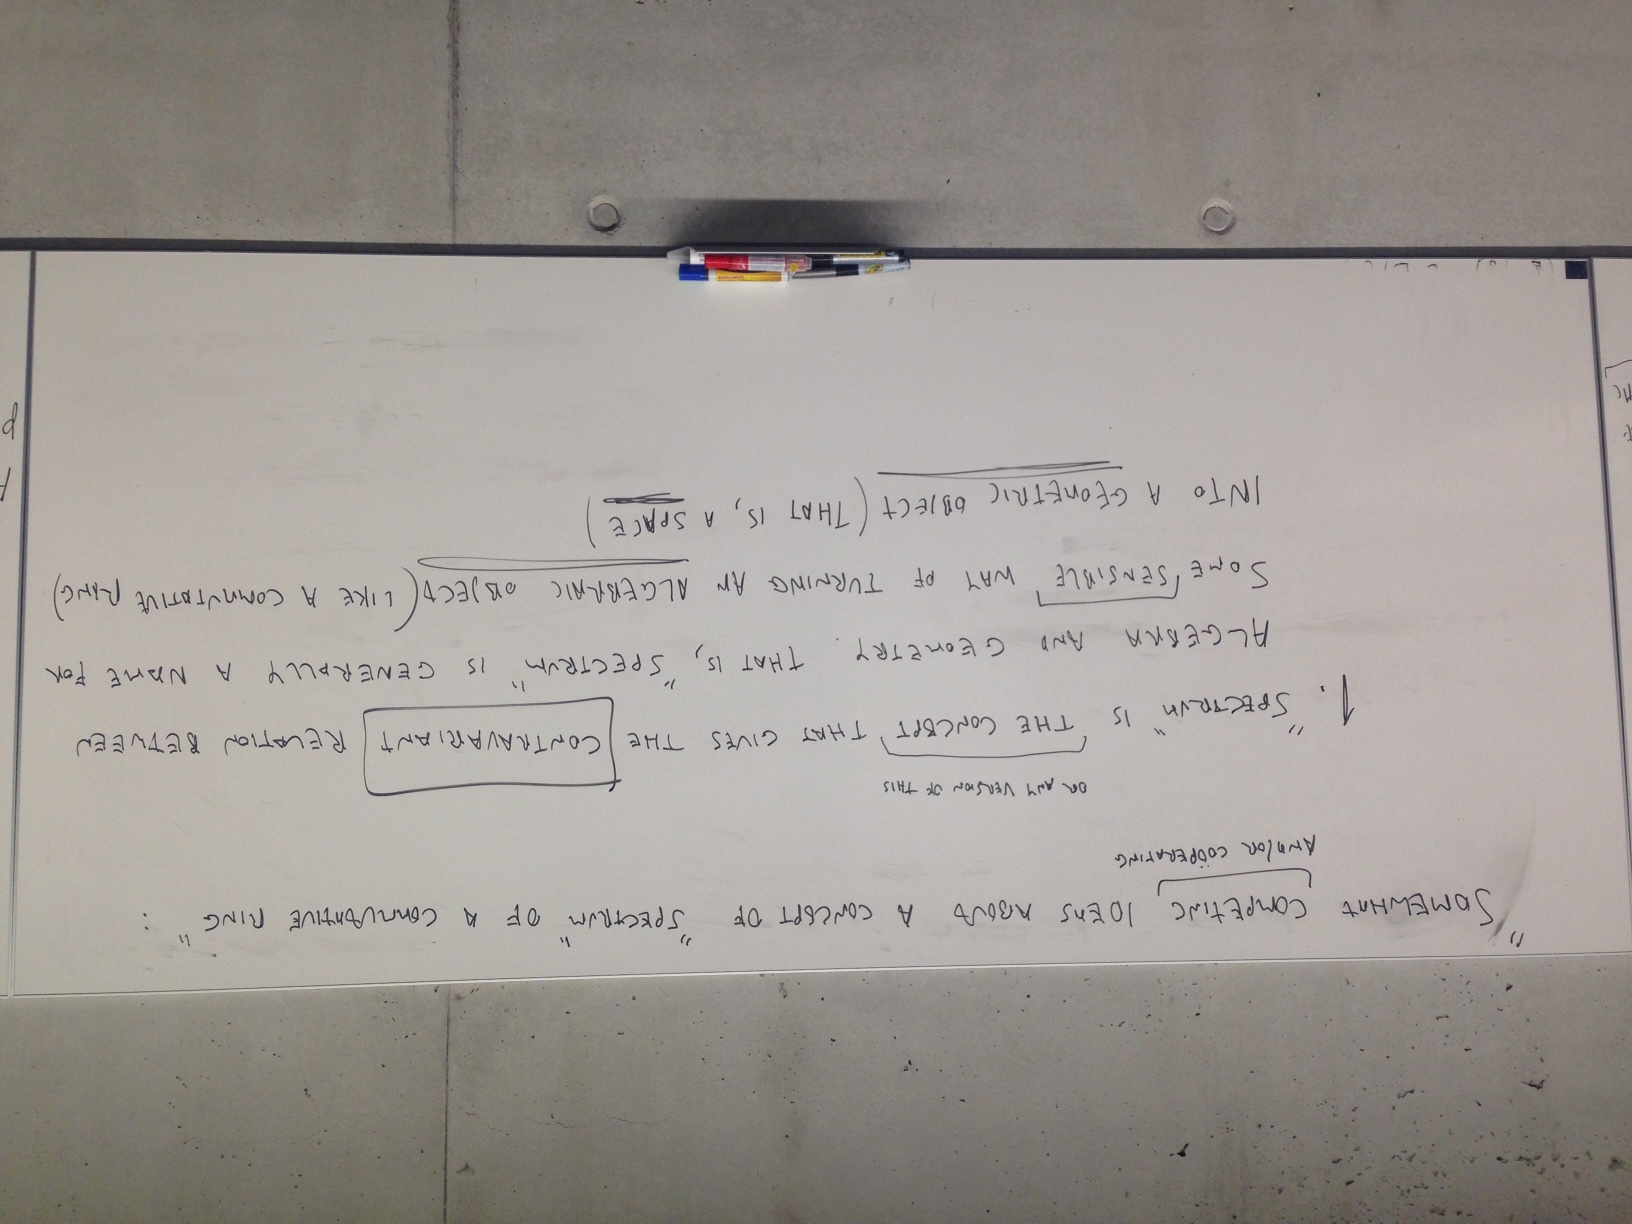 "SOMEWHAT COMPETING IDEAS ABOUT A CONCEPT OF "SPECTRUM" OF A COMMUTATIVE RING":
AND/OR COÖPERATING
OR ANY VERSION OF THIS
1. "SPECTRUM" IS THE CONCEPT THAT GIVES THE CONTRAVARIANT RELATION BETWEEN
ALGEBRA AND GEOMETRY. THAT IS, "SPECTRUM" IS GENERALLY A NAME FOR
SOME SENSIBLE WAY OF TURNING AN ALGEBRAIC OBJECT (LIKE A COMMUTATIVE RING)
INTO A GEOMETRIC OBJECT (THAT IS, A SPACE)